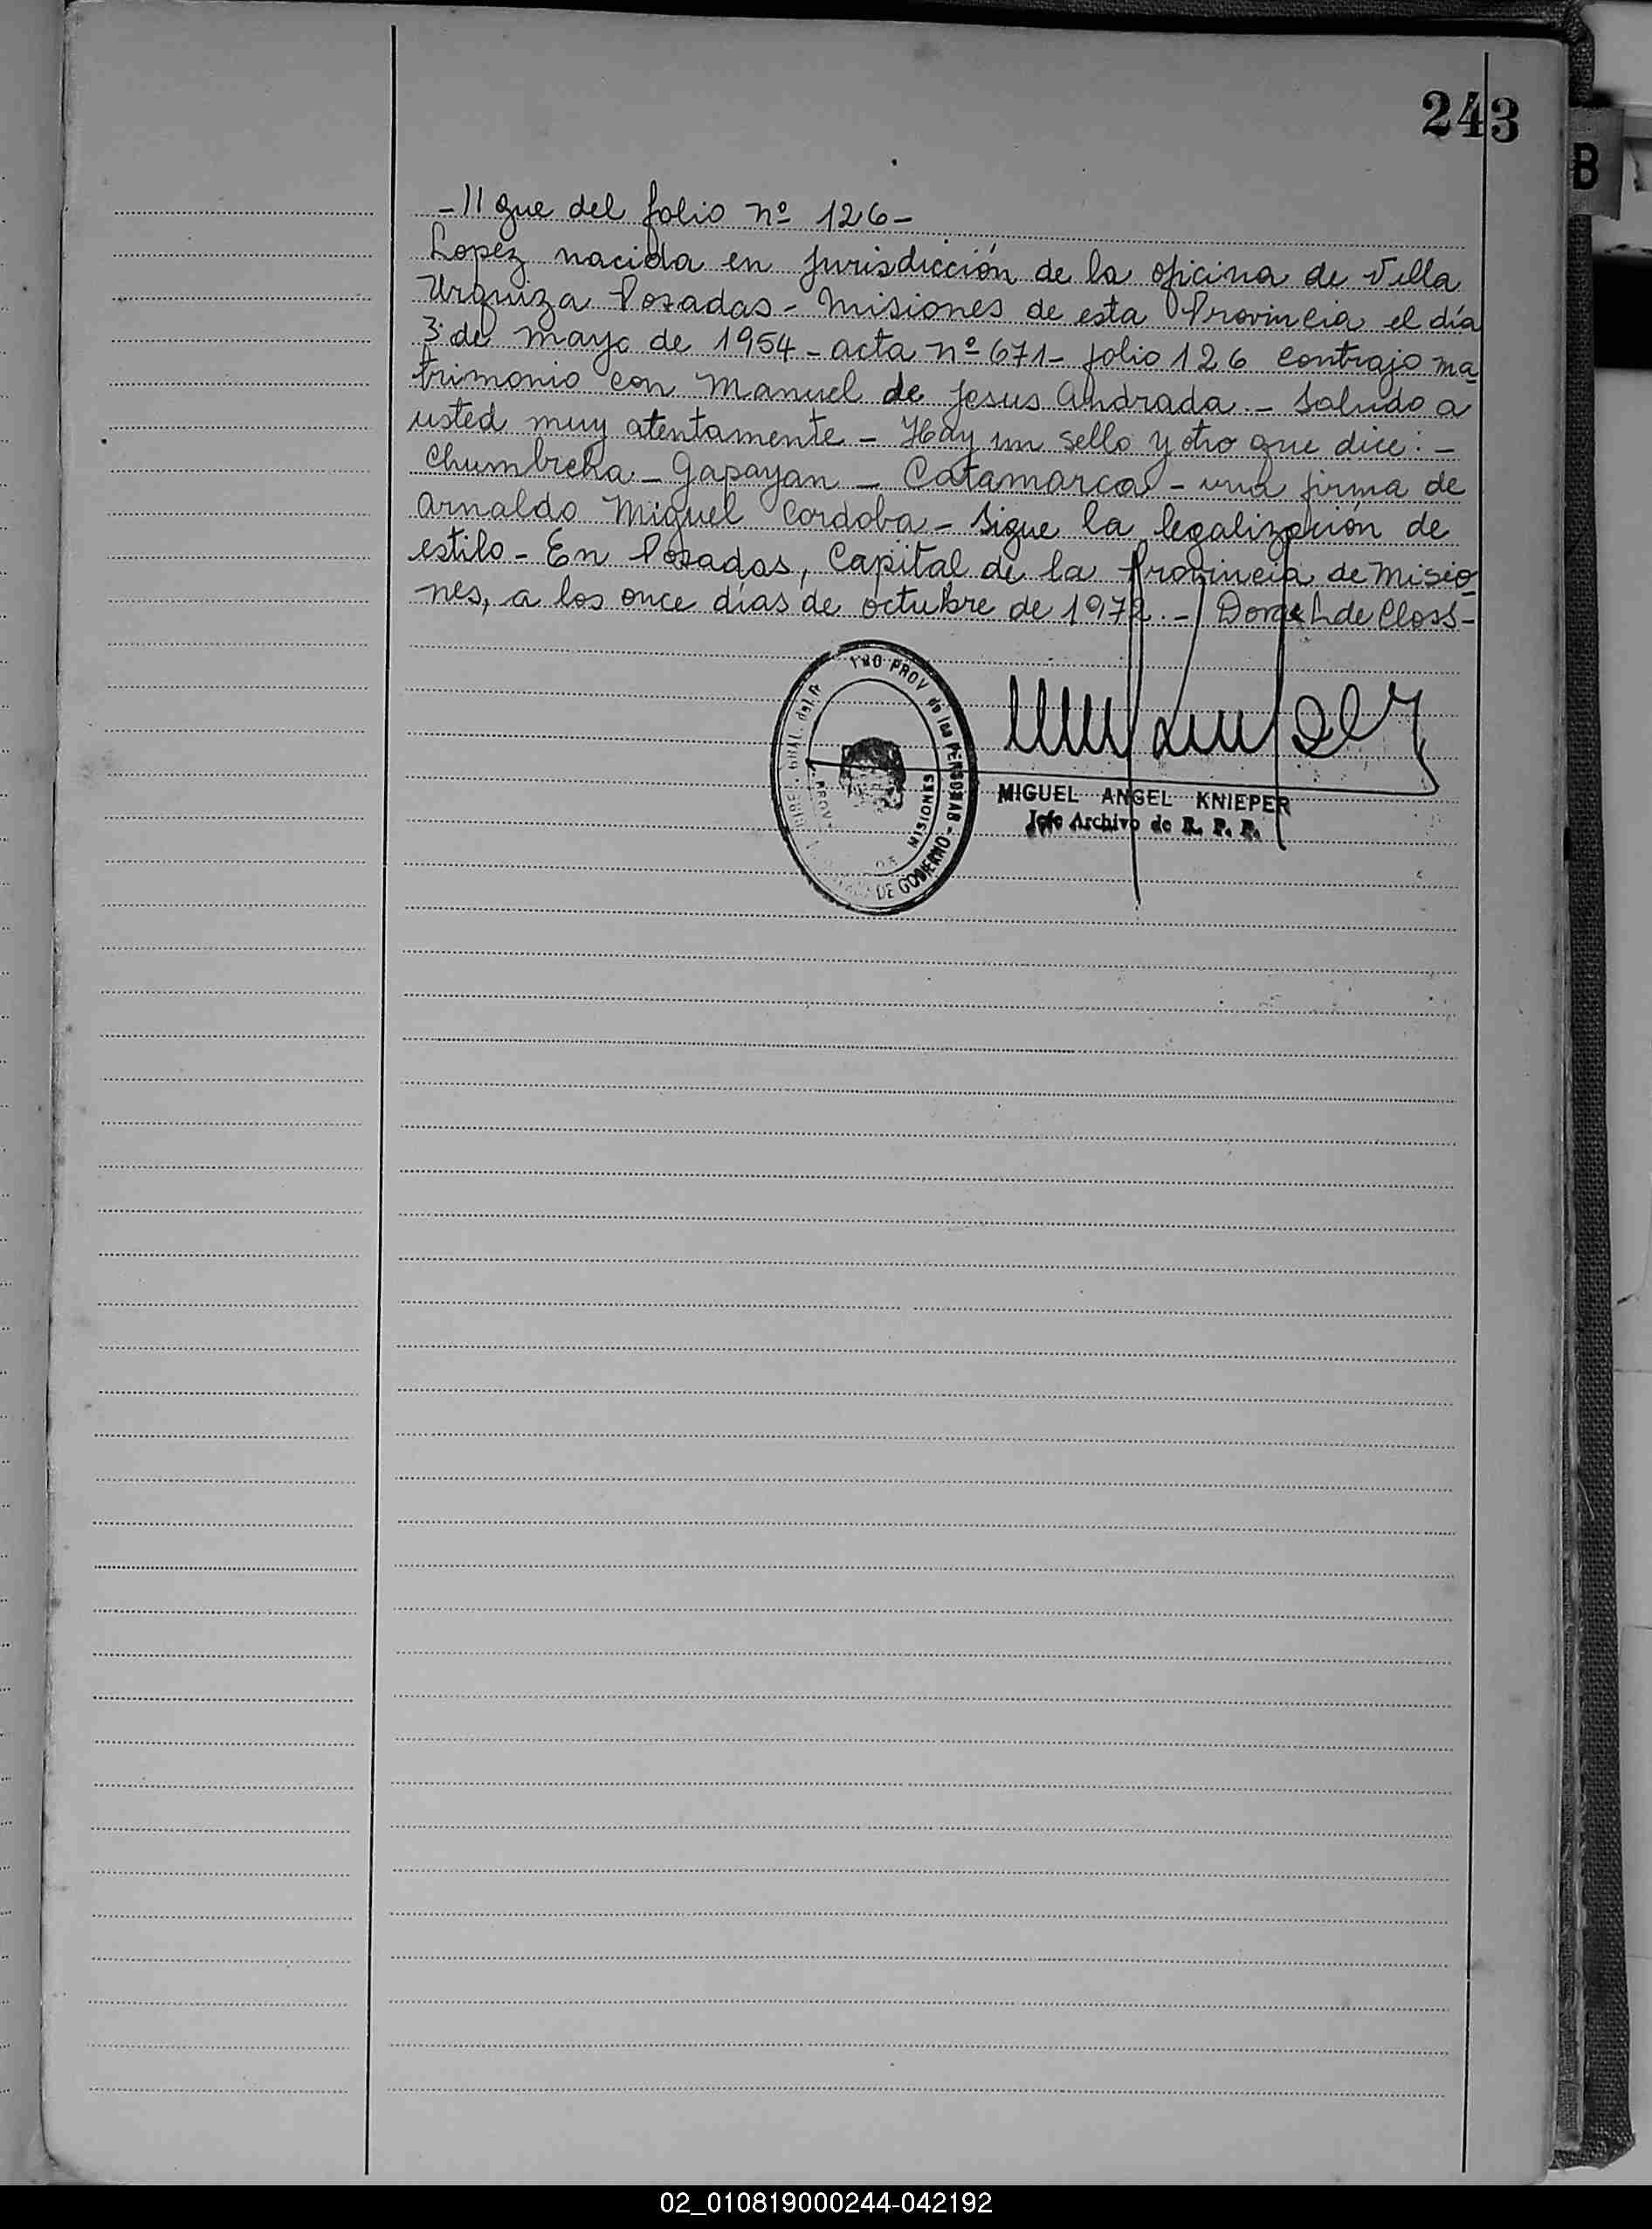 243
B
- // gue del folio nº 126 -
Lopez nacida en jurisdicción de la oficina de Villa
Urquiza Posadas - Misiones de esta Provincia el día
3 de mayo de 1954 - acta nº 671 - folio 126 contrajo ma
trimonio con Manuel de Jesus Andrada. - Saludo a
usted muy atentamente - Hay un sello y otro que dice: -
Chumbicha - Capayan - Catamarca - una firma de
Arnaldo Miguel Cordoba - Sigue la legalización de
estilo - En Posadas, Capital de la Provincia de Misio
nes, a los once días de octubre de 1972. - de Closs -
PROV de las PERSONAS - DE GOBIERNO
PROV. DE MISIONES
MIGUEL ANGEL KNIEPER
Jefe Archivo de R. P. P.
02_010819000244-042192